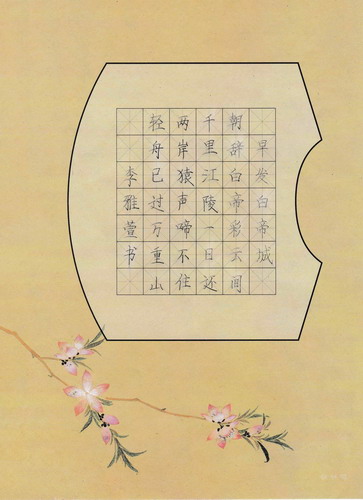 早发白帝城
朝辞白帝彩云间
千里江陵一日还
两岸猿声啼不住
轻舟已过万重山
李雅萱书